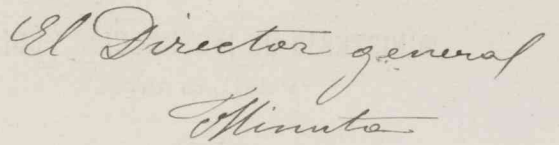 El Director general
Minuta